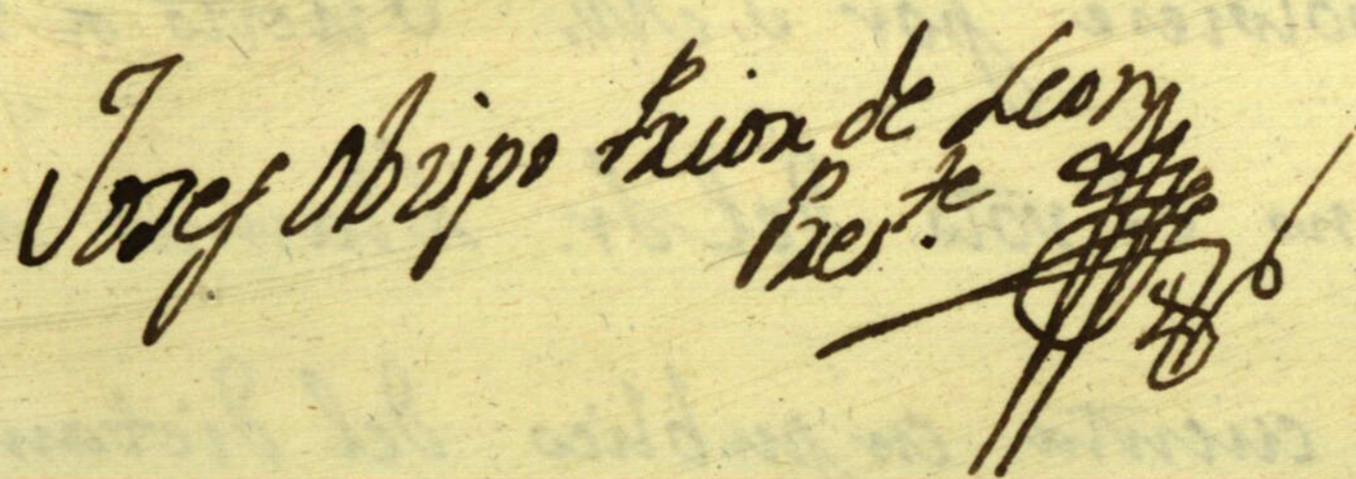 Josef Obispo Prior de Leon
Pres.te